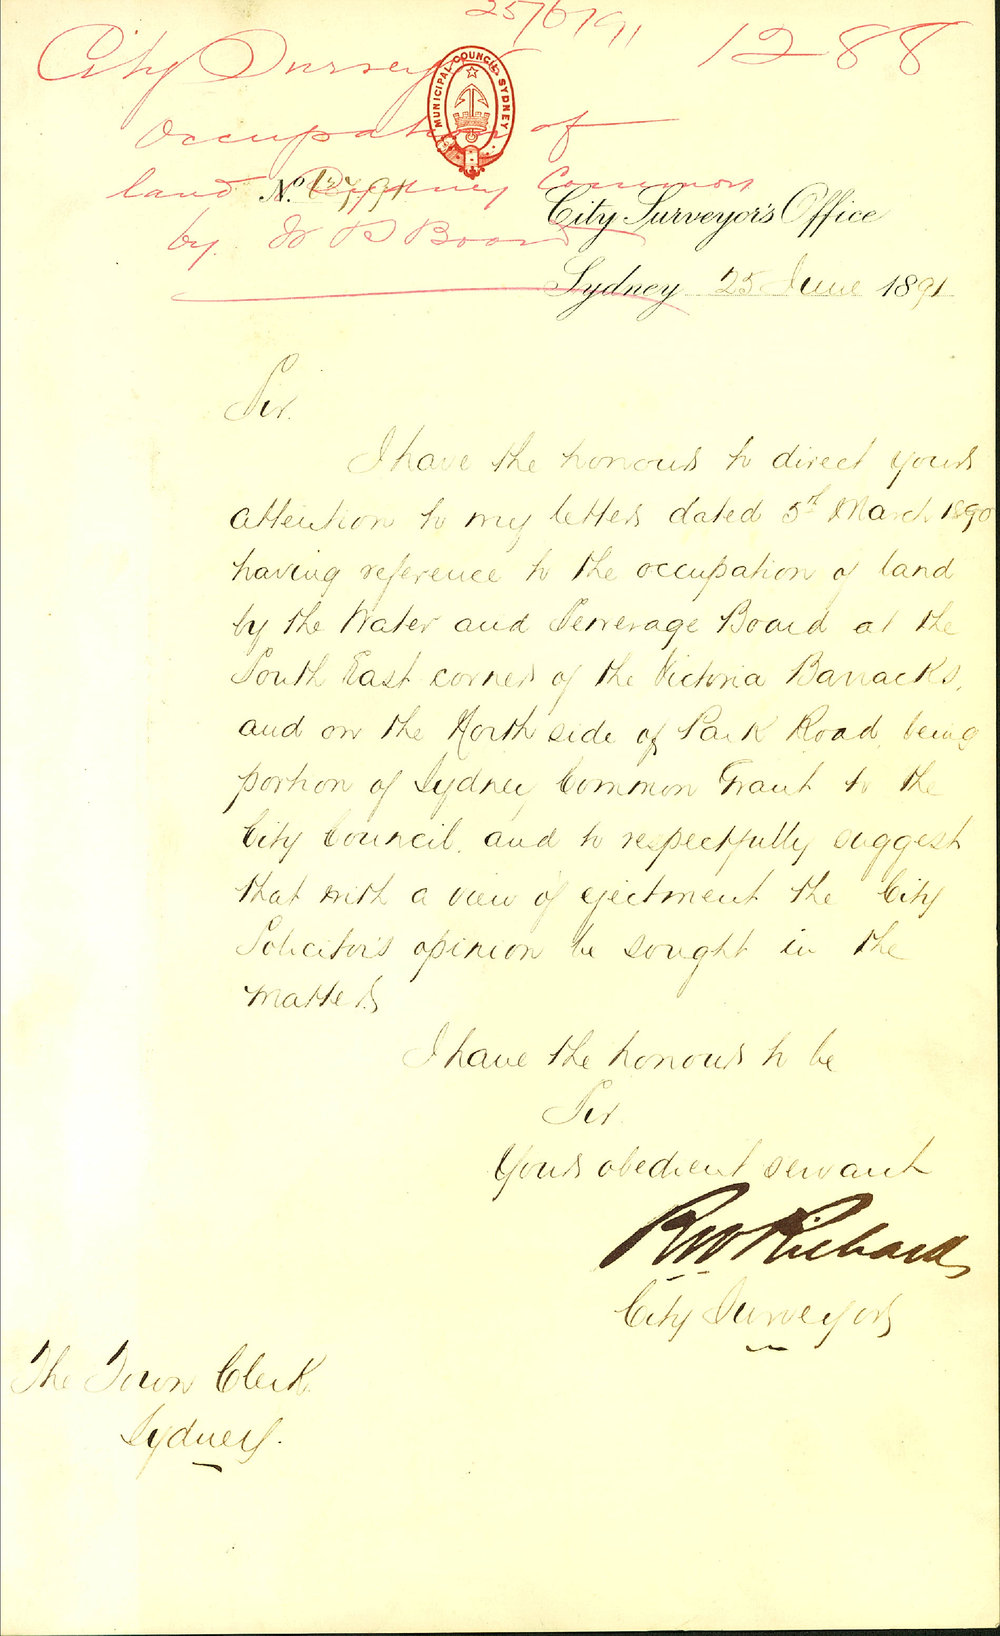 25/6/91
1288
City Surveyor
MUNICIPAL COUNCIL SYDNEY
Occupation of
land Sydney Common
No. 91
City Surveyor's Office
by W B Board
Sydney 25 June 1891
Sir.
I have the honour to direct your
attention to my letter dated 5th March 1890
having reference to the occupation of land
by the Water and Sewerage Board at the
South East corner of the Victoria Barracks,
and on the North side of Park Road, being
portion of Sydney Common Grant to the
City Council, and to respectfully suggest
that with a view of ejectment the City
Solicitor's opinion be sought in the
matter
I have the honour to be
Sir.
Your obedient servant
RW Richards
City Surveyor
The Town Clerk
Sydney.